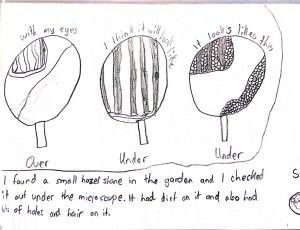 with my eyes
I think it will look like
It look's likes this
Over
Under
Under
I found a small hazel stone in the garden and I checked
it out under the microscope. It had dirt on it and also had
bits of holes and hair on it.
S